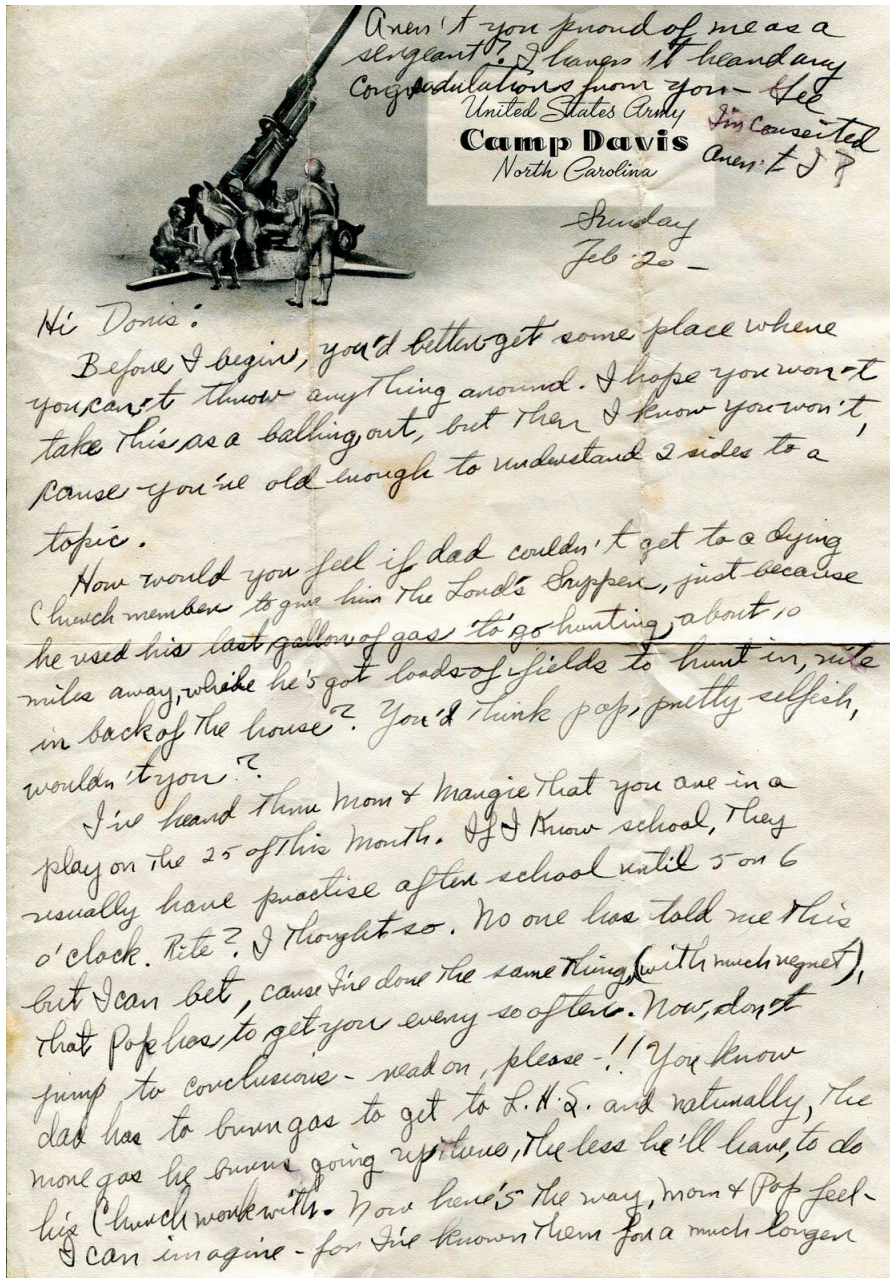 Aren't you proud of me as a
sergeant? I haven't heard any
Congradulations from you - Gee
I'm conseited
Aren't I?
United States Army
Camp Davis
North Carolina
Sunday
Feb. 20 -
Hi Doris:
Before I begin, you'd better get some place where
you can't throw anything around. I hope you won't
take this as a balling out, but then I know you won't,
cause you're old enough to understand 2 sides to a
topic.
How would you feel if dad couldn't get to a dying
Church member to give him the Lord's Supper, just because
he used his last gallon of gas to go hunting about 10
miles away, while he's got loads of fields to hunt in, rite
in back of the house? You'd think pop, pretty selfish,
wouldn't you?
I've heard thru Mom & Margie that you are in a
play on the 25 of this month. If I know school, they
usually have practise after school until 5 or 6
o'clock. Rite? I thought so. No one has told me this
but I can bet, cause I've done the same thing, (with much regret),
that Pop has to get you every so often. Now, don't
jump to conclusions - read on, please - !! You know
dad has to burn gas to get to L.H.S. and naturally, the
more gas he burns going up there, the less he'll have, to do
his Church work with. Now here's the way, Mom & Pop feel -
I can imagine - for I've known them for a much longer